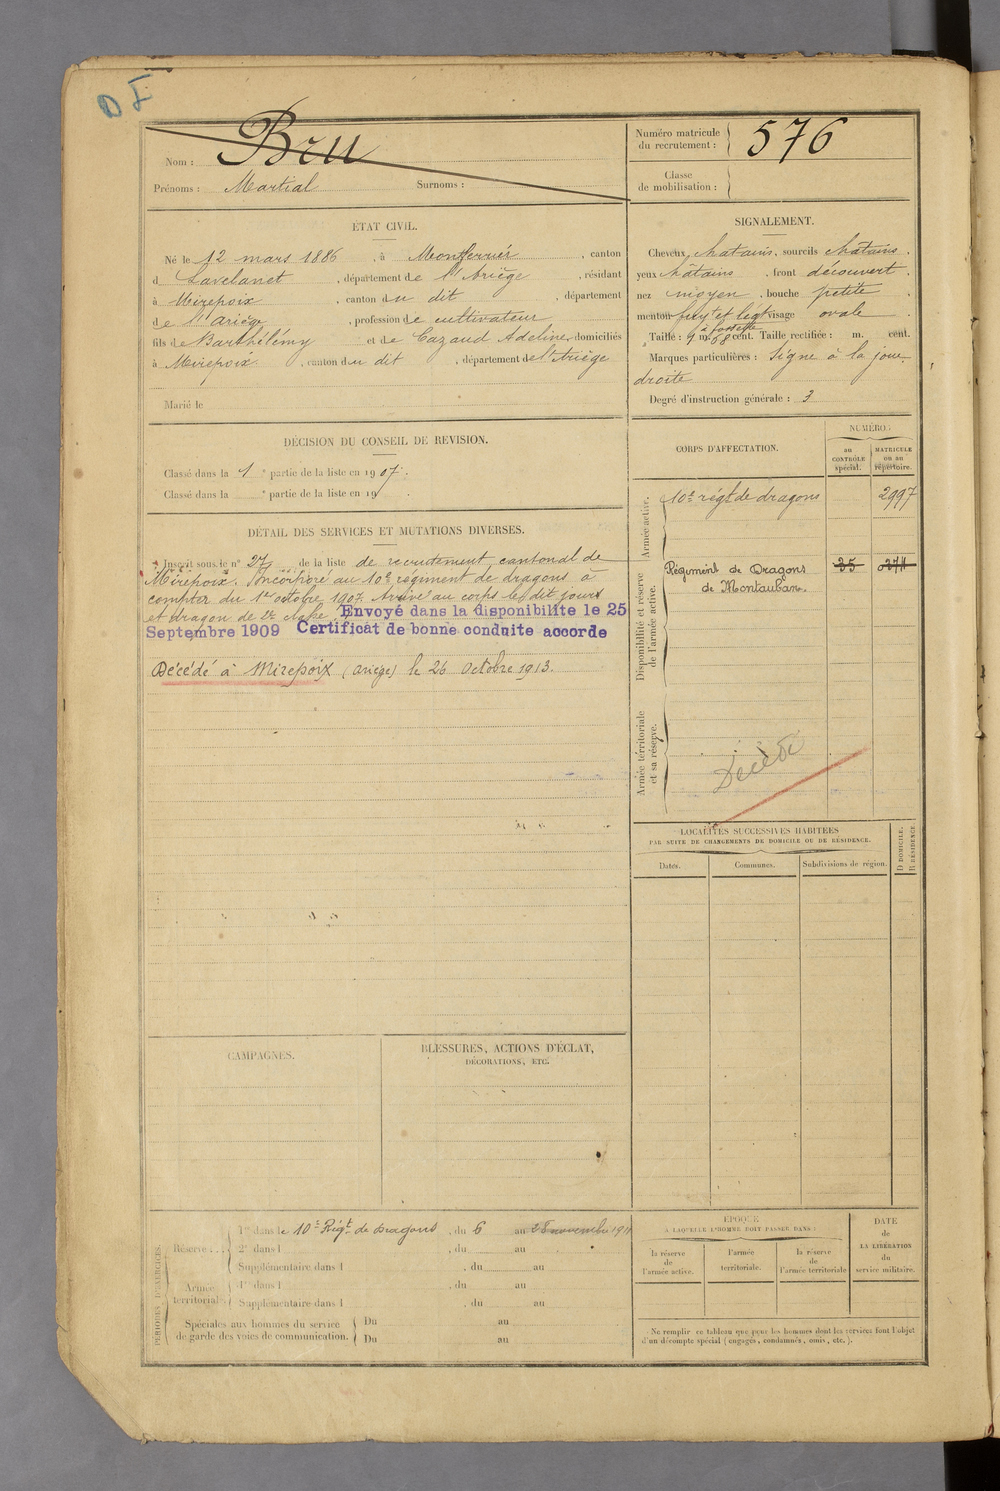 D I
Nom : Bru
Prénoms : Martial Surnoms :
Numéro matricule du recrutement : 576
Classe de mobilisation :
ÉTAT CIVIL.
Né le 12 mars 1886, à Montferrier, canton
d Lavelanet, département de l'Ariège, résidant
à Mirepoix, canton du dit, département
de l'Ariège, profession de cultivateur
fils de Barthélémy et de Cazaud Adeline, domiciliés
à Mirepoix, canton du dit, département de l'Ariège
Marié le
SIGNALEMENT.
Cheveux chatains, sourcils chatains.
yeux chatains, front découvert
nez moyen, bouche petite
menton visage ovale
Taille : 1 m. 68 cent. Taille rectifiée : m. cent.
Marques particulières : Signe à la joue
droite
Degré d'instruction générale : 3
DÉCISION DU CONSEIL DE REVISION.
Classé dans la 1e partie de la liste en 1907.
Classé dans la e partie de la liste en 19 .
DÉTAIL DES SERVICES ET MUTATIONS DIVERSES.
Inscrit sous le n° 27 de la liste de recrutement cantonal de
Mirepoix. Incorporé au 10e régiment de dragons à
compter du 1er octobre 1907. Arrivé au corps le dit jour
et dragon de 2e classe. Envoyé dans la disponibilite le 25
Septembre 1909 Certificat de bonne conduite accorde
Décédé à Mirepoix (Ariège) le 26 Octobre 1913.
CORPS D'AFFECTATION.
NUMÉRO :
au CONTRÔLE spécial.
MATRICULE ou au répertoire.
Armée active.
10e régt de dragons 2997
Disponibilité et réserve de l'armée active.
Régiment de Dragons 35
de Montauban.
Armée territoriale et sa réserve.
Décédé
LOCALITÉS SUCCESSIVES HABITÉES
PAR SUITE DE CHANGEMENTS DE DOMICILE OU DE RÉSIDENCE.
Dates. Communes. Subdivisions de région.
D DOMICILE.
R RÉSIDENCE.
CAMPAGNES.
BLESSURES, ACTIONS D'ÉCLAT,
DÉCORATIONS, ETC.
PÉRIODES D'EXERCICES.
Réserve :
1re dans le 10e Régt de Dragons, du 6 au 28 novembre 1911
2e dans l , du au
Supplémentaire dans l , du au
Armée territoriale
1re dans l , du au
Supplémentaire dans l , du au
Spéciales aux hommes du service
de garde des voies de communication.
Du au
Du au
ÉPOQUE
À LAQUELLE L'HOMME DOIT PASSER DANS :
la réserve de l'armée active.
l'armée territoriale.
la réserve de l'armée territoriale
DATE
de
LA LIBÉRATION
du
service militaire.
Ne remplir ce tableau que pour les hommes dont les services font l'objet
d'un décompte spécial (engagés, condamnés, omis, etc.).